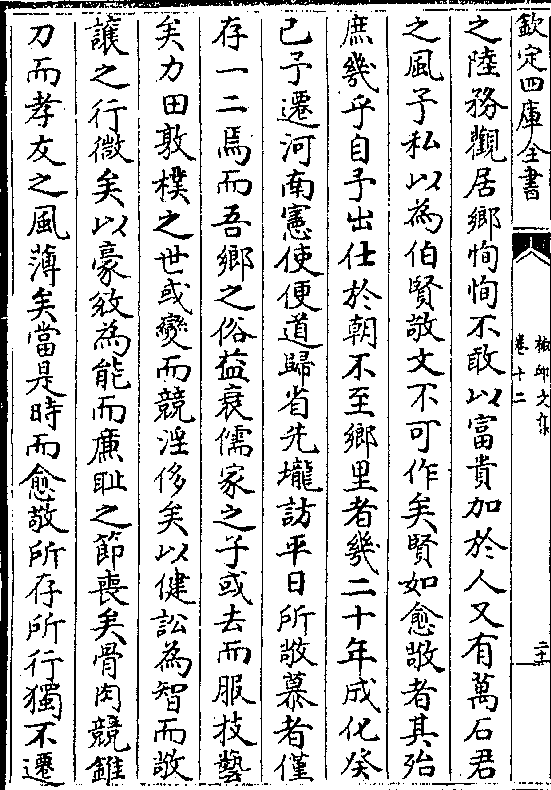 欽定四庫全書
卷十二
之陸務觀居鄉恂恂不敢以富貴加於人又有萬石君
之風予私以為伯賢敬文不可作矣賢如愈敬者其殆
庶幾乎自予出仕於朝不至鄉里者幾二十年成化癸
巳予遷河南憲使便道歸省先壠訪平日所敬慕者僅
存一二焉而吾鄉之俗益衰儒家之子或去而服技藝
矣力田敦樸之世或變而競淫侈矣以健訟為智而敬
讓之行微矣以豪放為能而廉耻之節喪矣骨肉競錐
刀而孝友之風薄矣當是時而愈敬所存所行獨不遷